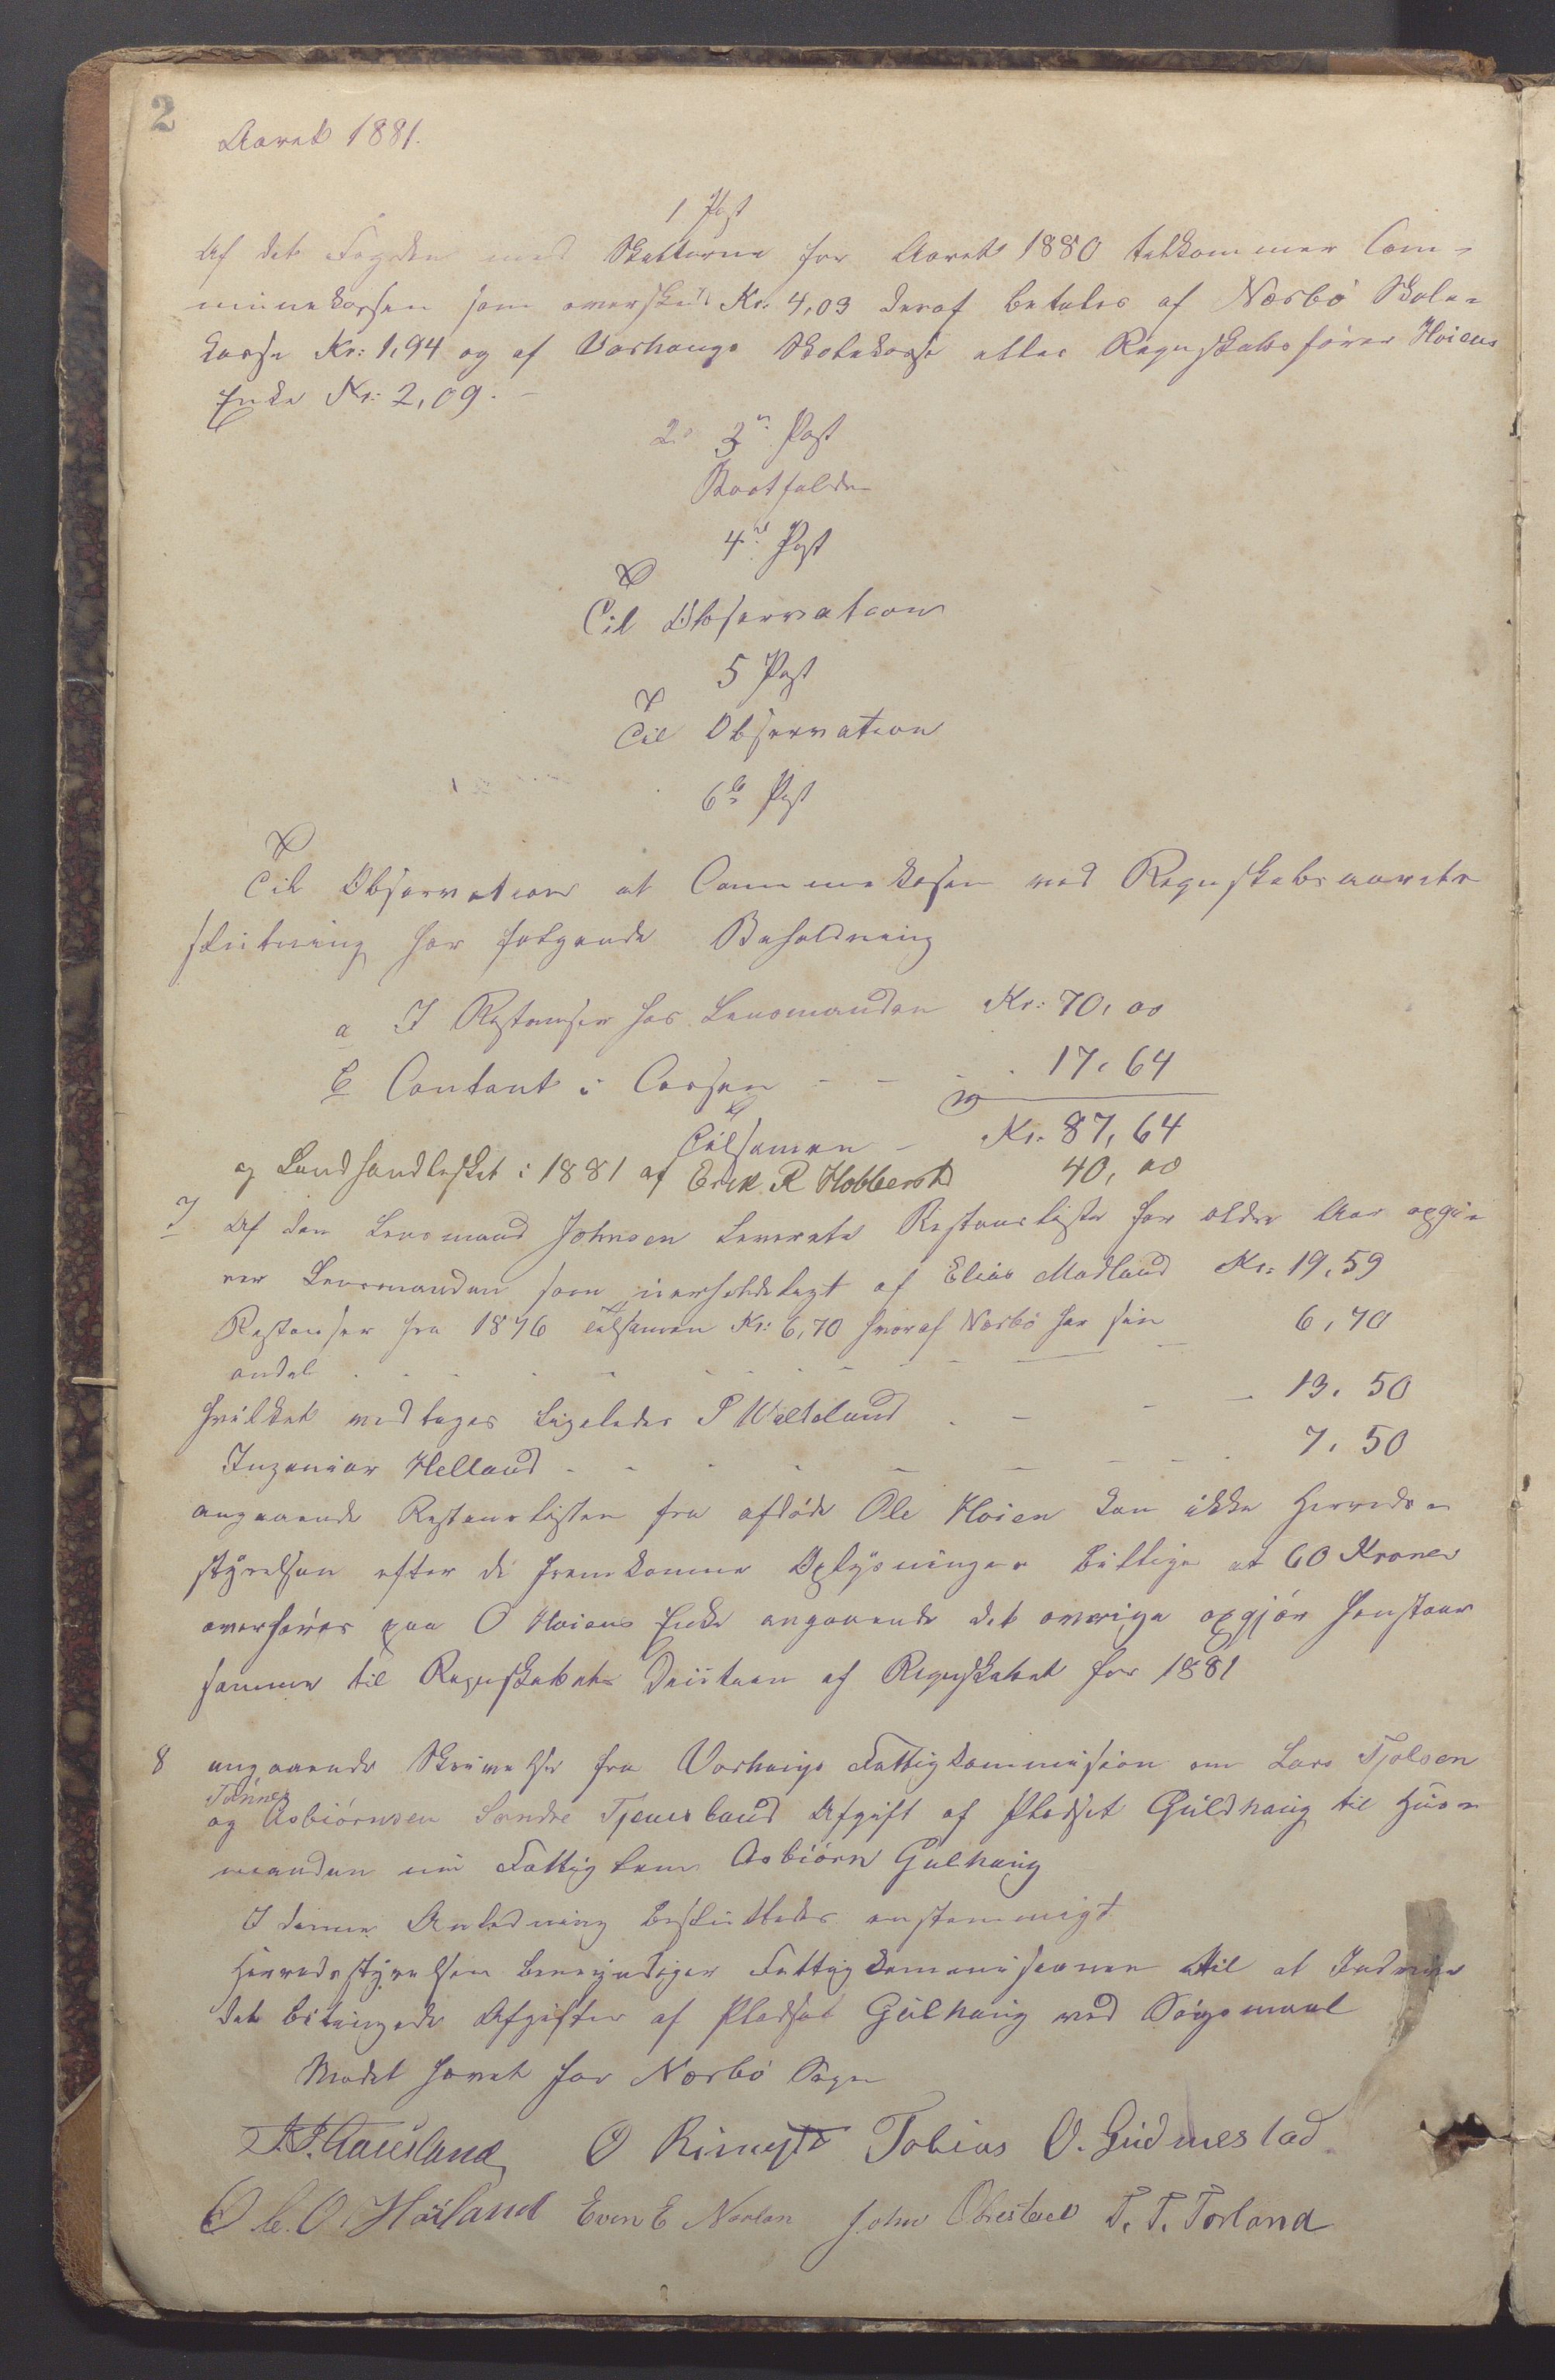 2
Aaret 1881.
1 Post
Af det Fogden med Skatterne for Aaret 1880 tilkommer Com-
munekassen som overskud Kr. 4,03 deraf betales af Nærbø Skole-
kasse Kr: 1,94 og af Varhaugs Skolekasse eller Regnskabsfører Hoiens
Enke Kr: 2,09. -
2. 3die Post
Bortfalder
4de Post
Til Observation
5 Post
Til Observation
6te Post
Til Observation at Communekassen ved Regnskabsaarets
slutning har følgende Beholdning
a I Restanser hos Lensmanden Kr: 70,00
b Contant i Cassen - - - . 17,64
Tilsamen - Kr. 87,64
og Landhandlerskat i 1881 af Erik R Hobberstd 40,00
7 Af den Lensmand Johnsen leverte Restanseliste for ældre Aar opgi-
ver Lensmanden som uerholdeligt af Elias Madland Kr: 19,59
Restanser fra 1876 tilsamen Kr: 6,70 hvoraf Nærbø har sin 6,70
andel . . . . . - - - -
hvilket vedtages ligeledes P Watteland . - - - 13.50
Ingeniør Helland - - - - - - - - . 7.50
angaaende Restanselisten fra afdøde Ole Hoien kan ikke Herreds-
styrelsen efter de fremkomne Oplysninger billige at 60 Kroner
overføres paa O Hoiens Enke angaaende det øvrige opgjør henstaar
samme til Regnskabets Decition af Regnskabet for 1881
8 angaaende Skrivelse fra Varhaugs Fattigkommission om Lars Tjolsen
Tønnes
og Asbiørnsen Søndre Tjensland Afgift af Pladset Guldhaug til Hus-
manden nu Fattiglem Asbiørn Gulhaug
I denne Anledning besluttedes enstemmigt
Herredsstyrelsen bemyndiger Fattigkommissionen til at Inddrive
det betingede Afgifter af Pladset Gulhaug ved Søgsmaal
Mødet hævet for Nærbø Sogn
O Rimestd Tobias O. Gudmestad
Ole. O. Høiland Even E Nærlan John Obrestad T. T. Torland